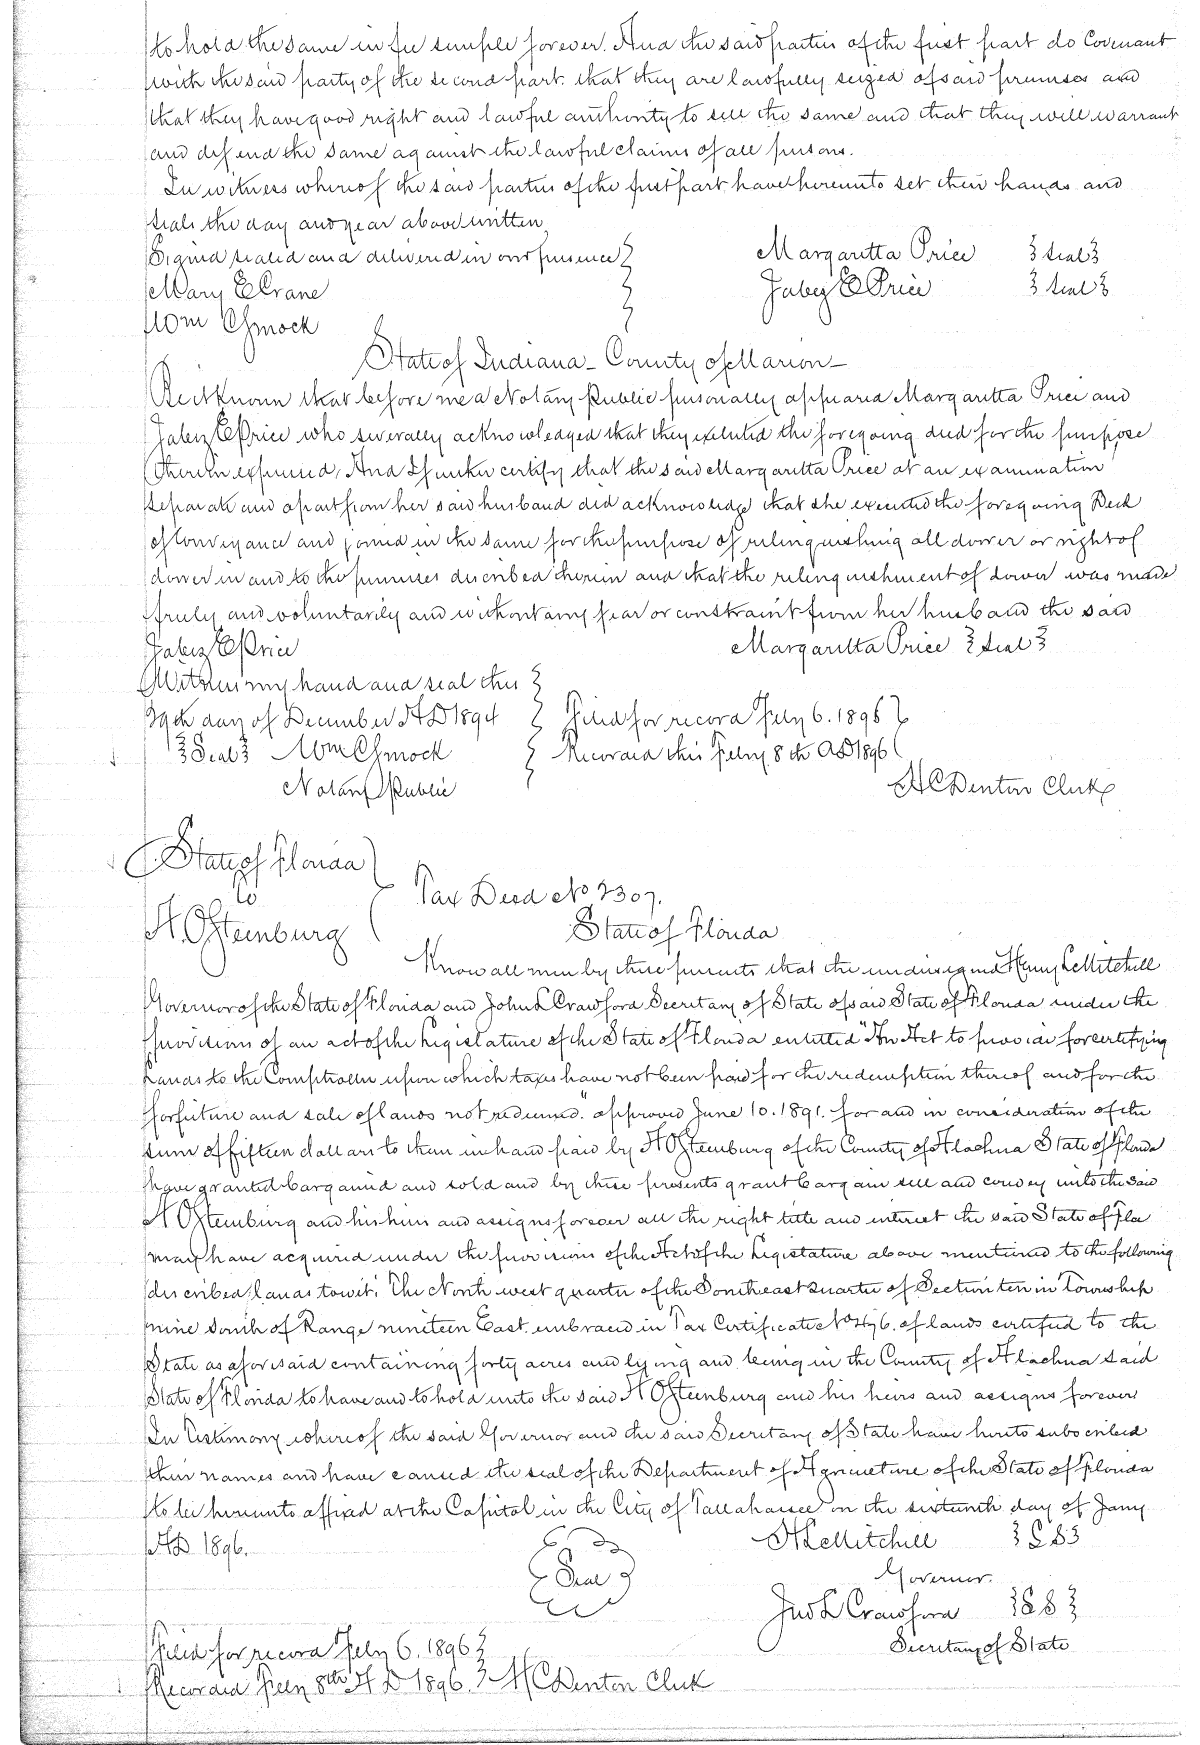 to hold the same in fee simple forever. And the said parties of the first part do Covenant
with the said party of the second part. that they are lawfully seized of said premises and
that they have good right and lawful authority to sell the same and that they will warrant
and defend the same against the lawful claims of all persons.
In witness whereof the said parties of the first part have hereunto set their hands and
seals the day and year above written
Signed sealed and delivered in our presence } Margaretta Price {Seal}
Mary E Crane } Jabez E Price {Seal}
Wm C Smock
State of Indiana - County of Marion -
Be it Known that before me a Notary Public personally appeared Margaretta Price and
Jabez E Price who severally acknowledged that they executed the foregoing deed for the purpose
therein expressed, And I further certify that the said Margaretta Price at an examination
separate and apart from her said husband did acknowledge that she executed the foregoing Deed
of Conveyance and joined in the same for the purpose of relinquishing all dower or right of
dower in and to the premises described therein and that the relinquishment of dower was made
freely and voluntarily and without any fear or constraint from her husband the said
Jabez E Price Margaretta Price {Seal}
Witness my hand and seal this }
29th day of December A D 1894 } Filed for record Feby 6. 1896 }
{Seal} Wm C Smock } Recorded this Feby 8th A D 1896 {
Notary Public H C Denton Clerk
State of Florida )
to ( Tax Deed No 2307.
H. O. Steenburg ( State of Florida
Know all men by these presents that the undersigned Henry L Mitchell
Governor of the State of Florida and John L Crawford Secretary of State of said State of Florida under the
provisions of an act of the Legislature of the State of Florida entitled "An Act to provide for certifying
Lands to the Comptroller upon which taxes have not been paid for the redemption thereof and for the
forfeiture and sale of lands not redeemed." approved June 10. 1891. for and in consideration of the
sum of fifteen dollars to them in hand paid by H O Steenburg of the County of Alachua State of Florida
have granted bargained and sold and by these presents grant bargain sell and convey unto the said
H O Steenburg and his heirs and assigns forever all the right title and interest the said State of Fla
may have acquired under the provisions of the Act of the Legistature above mentioned to the following
described lands towit: The North west quarter of the South east quarter of Section ten in Township
nine South of Range nineteen East. embraced in Tax Certificate No 476. of lands certified to the
State as aforesaid containing forty acres and lying and being in the County of Alachua said
State of Florida to have and to hold unto the said H O Steenburg and his heirs and assigns forever
In Testimony whereof the said Governor and the said Secretary of State have hereto subscribed
their names and have caused the seal of the Department of Agriculture of the State of Florida
to be hereunto affixed at the Capitol in the City of Tallahassee on the sixteenth day of Jany
A D 1896. H L Mitchell {LS}
{Seal} Governor.
Jno L Crawford {LS}
Filed for record Feby 6. 1896 } Secretary of State
Recorded Feby 8th A D 1896. } H C Denton Clerk